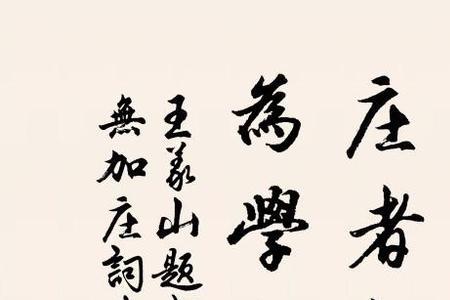 庄者
為學
王義山題
無加庄詞